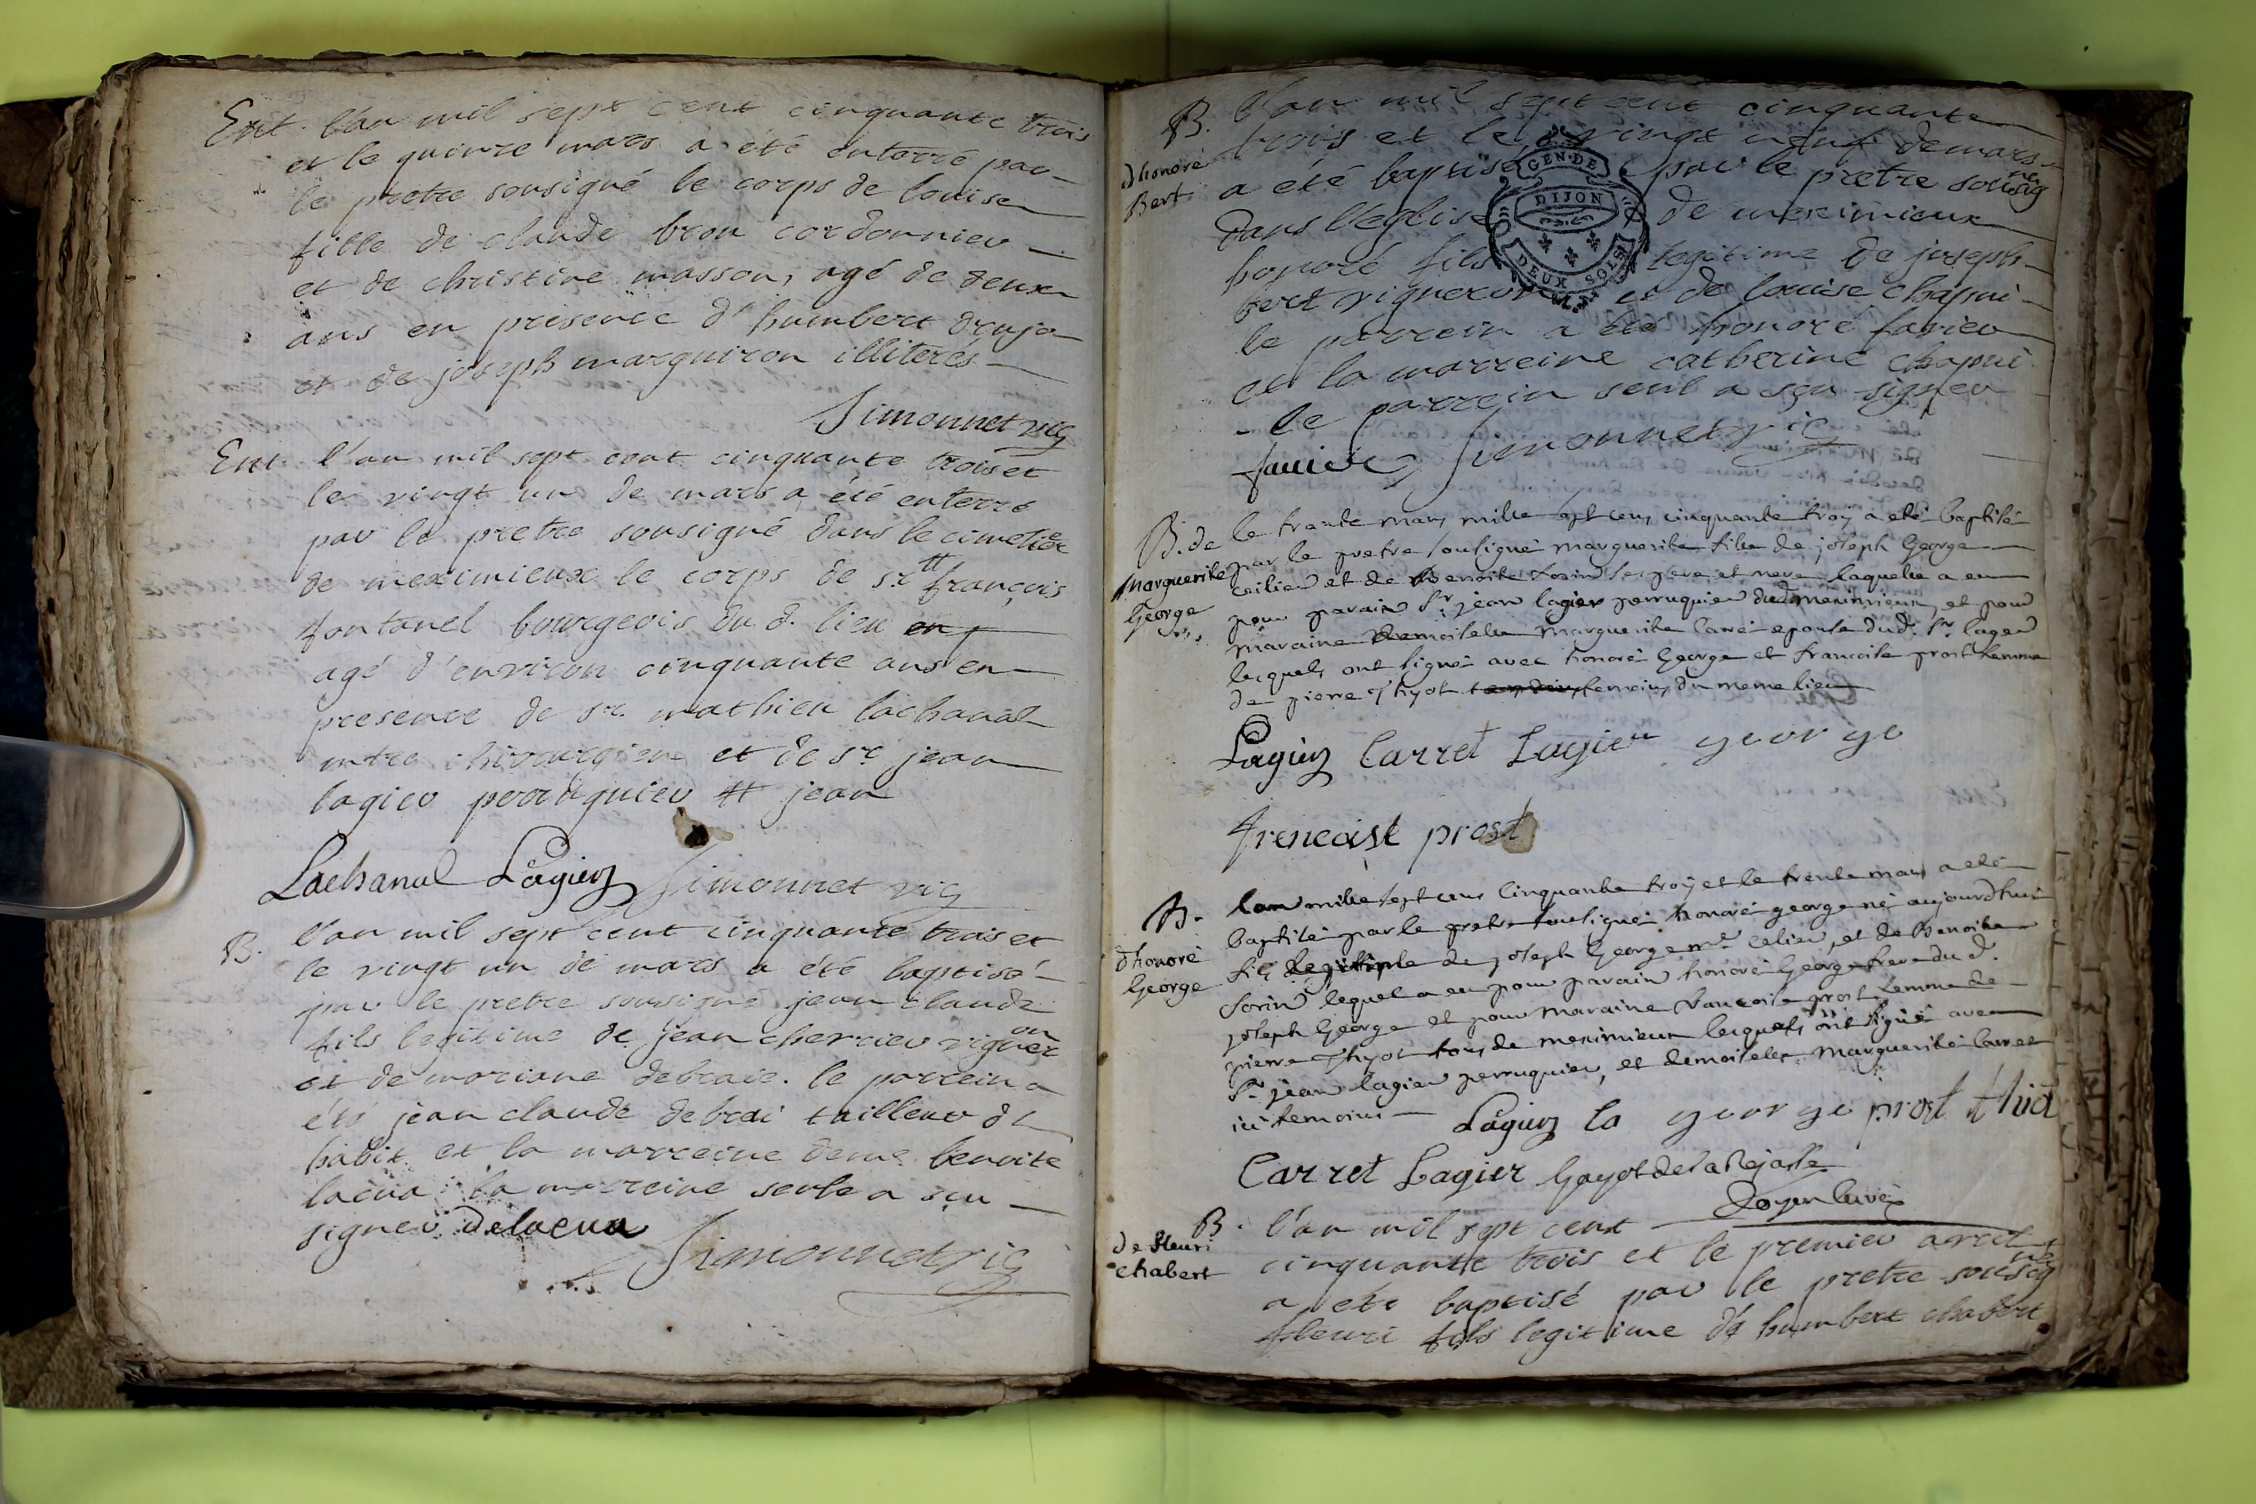 Ent. l'an mil sept cent cinquante trois
et le quinze mars a été enterré par
le pretre sousigné le corps de louise
fille de claude bron cordonnier
et de christine masson, agé de deux
ans en presence d'humbert druja
et de joseph marguiron illiterés
Simonnet vic
Ent l'an mil sept cent cinquante trois et
le vingt un de mars a été enterré
par le pretre sousigné dans le cimetiere
de meximieux le corps de sr. # françois
fontanel bourgeois du d. lieu
agé d'environ cinquante ans en
presence de sr. mathieu lachanal
mtre chirurgien et de sr jean
lagier perruquier # jean
Lachanal Lagier Simonnet vic
B. l'an mil sept cent cinquante trois et
le vingt un de mars a été baptisé
par le pretre sousigné jean claude
fils legitime de jean chercieu vigneron
et de moriane debraie. le parrein a
été jean claude debrai tailleur d
habit et la marreine deme benoite
lacua la marreine seule a sçu
signer delacua
Simonnet vic
B. l'an mil sept cent cinquante
trois et le vingt neuf de mars
d'honoré
a été baptisé par le pretre sousigné
Bert
dans l'eglise de meximieux
honoré fils legitime de joseph
bert vigneron et de louise chapui
le parrein a été honoré favier
et la marreine catherine chapui
le parrein seul a sçu signer
favier Simonnet vic
GEN·DE
DIJON
DEUX SOLS
B. de le trante mars mille sept cens cinquante troy a eté baptisé
Marguerite par le pretre sousigné marguerite fille de joseph George
George ceilier et de Benoite sorin ses pere et mere laquelle a eu
pour parain Sr jean lagier perruquier dud meximieux, et pour
maraine demoiselle Marguerite Carré epouse dud. Sr lagier
lesquels ont signé avec honoré George et francoise prost femme
de pierre Thyot temoins du meme lieu
Lagier Carret Lagier george
frencoise prost
B. l'an mille sept cens Cinquante troy et le trente mars a eté
d'honoré
George
baptisé par le pretre sousigné honoré george né aujourdhui
fils legitime de joseph George md. Celier, et de Benoite
sorin lequel a eu pour parain honoré George frere du d.
joseph George et pour maraine francoise prost femme de
pierre Thyot tous de meximieux lesquels ont signé avec
Sr jean lagier perruquier, et demoiselle Marguerite Carret
ici temoins Lagier la george prost thiot
Carret Lagier Gayot de la Rejasse
Doyen Curé
B. l'an mil sept cent
de fleuri
chabert
cinquante trois et le premier avril
a eté baptisé par le pretre sousigné
fleuri fils legitime de humbert chabert